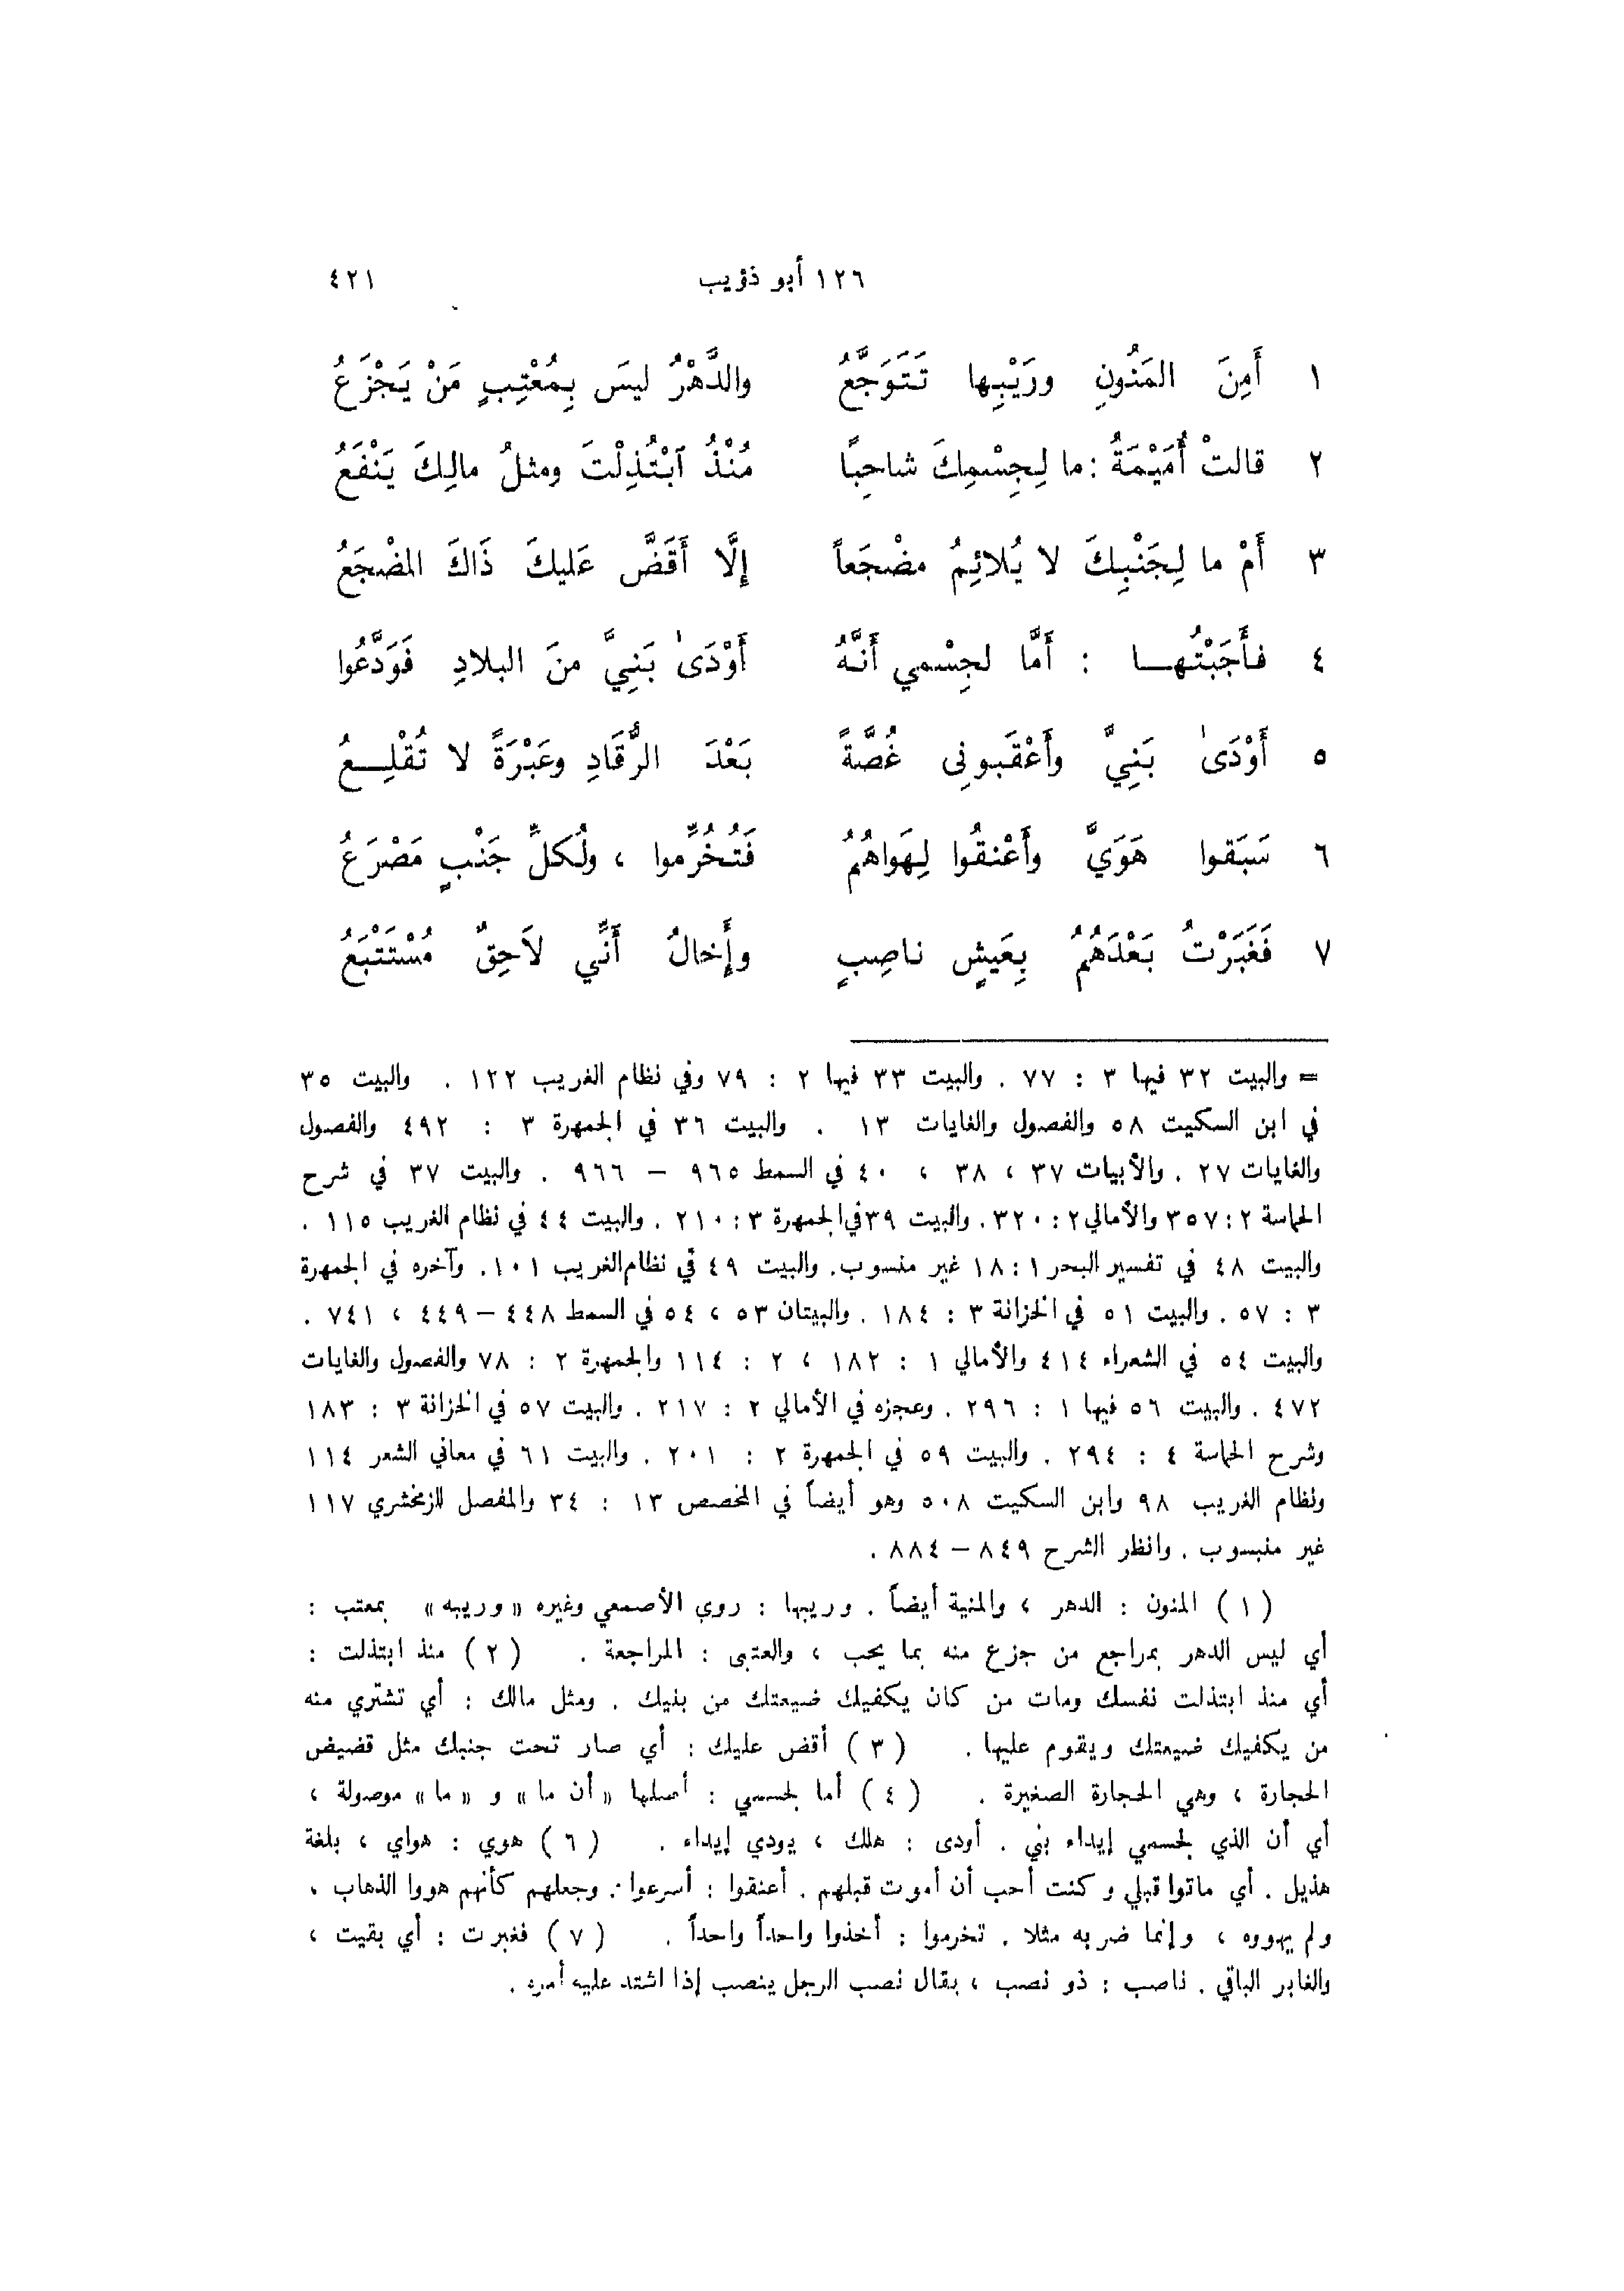 ١٢٦ أبو ذؤيب ٤٢١
١ أَمِنَ المَنُونِ ورَيْبِها تَتَوَجَّعُ والدَّهْرُ ليسَ بِمُعْتِبٍ مَنْ يَجْزَعُ
٢ قالتْ أُمَيْمَةُ : ما لِجِسْمِكَ شاحِبًا مُنْذُ ٱبْتُذِلْتَ ومثلُ مالِكَ يَنْفَعُ
٣ أَمْ ما لِجَنْبِكَ لا يُلائِمُ مضْجَعاً إِلَّا أَقَضَّ عَليكَ ذَاكَ المضْجَعُ
٤ فأَجَبْتُهـا : أَمَّا لجِسْمي أَنَّهُ أَوْدَىٰ بَنِيَّ منَ البلادِ فَوَدَّعُوا
٥ أَوْدَىٰ بَنِيَّ وأَعْقَبونى غُصَّةً بَعْدَ الرُّقَادِ وعَبْرَةً لا تُقْلِـعُ
٦ سَبَقوا هَوَيَّ وأَعْنقُوا لِهَواهُمُ فَتُخُرِّموا ، ولُكلِّ جَنْبٍ مَصْرَعُ
٧ فَغَبَرْتُ بَعْدَهُمُ بِعَيشٍ ناصِبٍ وإِخالُ أَنِّي لاَحِقٌ مُسْتَتْبَعُ
= والبيت ٣٢ فيها ٣ : ٧٧ . والبيت ٣٣ فيها ٢ : ٧٩ وفي نظام الغريب ١٢٢ . والبيت ٣٥
في ابن السكيت ٥٨ والفصول والغايات ١٣ . والبيت ٣٦ في الجمهرة ٣ : ٤٩٢ والفصول
والغايات ٢٧ . والأبيات ٣٧ ، ٣٨ ، ٤٠ في السمط ٩٦٥ – ٩٦٦ . والبيت ٣٧ في شرح
الحماسة ٢ : ٣٥٧ والأمالي ٢ : ٣٢٠ . والبيت ٣٩ في الجمهرة ٣ : ٢١٠ . والبيت ٤٤ في نظام الغريب ١١٥ .
والبيت ٤٨ في تفسير البحر ١ : ١٨ غير منسوب . والبيت ٤٩ في نظام الغريب ١٠١ . وآخره في الجمهرة
٣ : ٥٧ . والبيت ٥١ في الخزانة ٣ : ١٨٤ . والبيتان ٥٣ ، ٥٤ في السمط ٤٤٨ – ٤٤٩ ، ٧٤١ .
والبيت ٥٤ في الشعراء ٤١٤ والأمالي ١ : ١٨٢ ، ٢ : ١١٤ والجمهرة ٢ : ٧٨ والفصول والغايات
٤٧٢ . والبيت ٥٦ فيها ١ : ٢٩٦ . وعجزه في الأمالي ٢ : ٢١٧ . والبيت ٥٧ في الخزانة ٣ : ١٨٣
وشرح الحماسة ٤ : ٢٩٤ . والبيت ٥٩ في الجمهرة ٢ : ٢٠١ . والبيت ٦١ في معاني الشعر ١١٤
ونظام الغريب ٩٨ وابن السكيت ٥٠٨ وهو أيضاً في المخصص ١٣ : ٣٤ والمفصل للزمخشري ١١٧
غير منسوب . وانظر الشرح ٨٤٩ – ٨٨٤ .
( ١ ) المنون : الدهر ، والمنية أيضاً . وريبها : روى الأصمعي وغيره « وريبه » بمعتب :
أي ليس الدهر بمراجع من جزع منه بما يحب ، والعتبى : المراجعة . ( ٢ ) منذ ابتذلت :
أي منذ ابتذلت نفسك ومات من كان يكفيك ضيعتك من بنيك . ومثل مالك : أي تشتري منه
من يكفيك ضيعتك ويقوم عليها . ( ٣ ) أقض عليك : أي صار تحت جنبك مثل قضيض
الحجارة ، وهي الحجارة الصغيرة . ( ٤ ) أما لجسمي : أصلها « أن ما » و « ما » موصولة ،
أي أن الذي لجسمي إيداء بني . أودى : هلك ، يودي إيداء . ( ٦ ) هوي : هواي ، بلغة
هذيل . أي ماتوا قبلي وكنت أحب أن أموت قبلهم . أعنقوا : أسرعوا . وجعلهم كأنهم هووا الذهاب ،
ولم يهووه ، وإنما ضربه مثلا . تخرموا : أخذوا واحداً واحداً . ( ٧ ) فغبرت : أي بقيت ،
والغابر الباقي . ناصب : ذو نصب ، يقال نصب الرجل ينصب إذا اشتد عليه أمره .